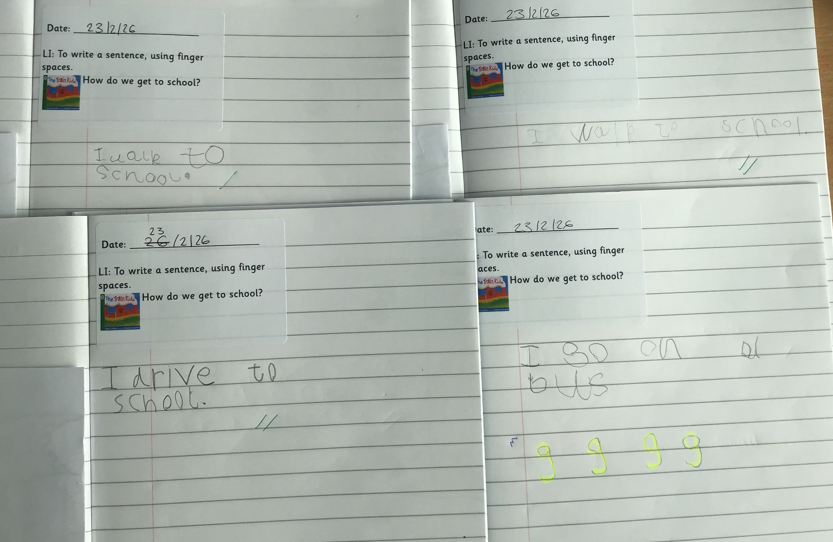 Date: 23/2/26
LI: To write a sentence, using finger
spaces.
How do we get to school?
I walk to
school.
Date: 23/2/26
LI: To write a sentence, using finger
spaces.
How do we get to school?
I walk to school.
23
Date: 26/2/26
LI: To write a sentence, using finger
spaces.
How do we get to school?
I drive to
school.
ate: 23/2/26
: To write a sentence, using finger
aces.
How do we get to school?
I go on a
bus
g g g g